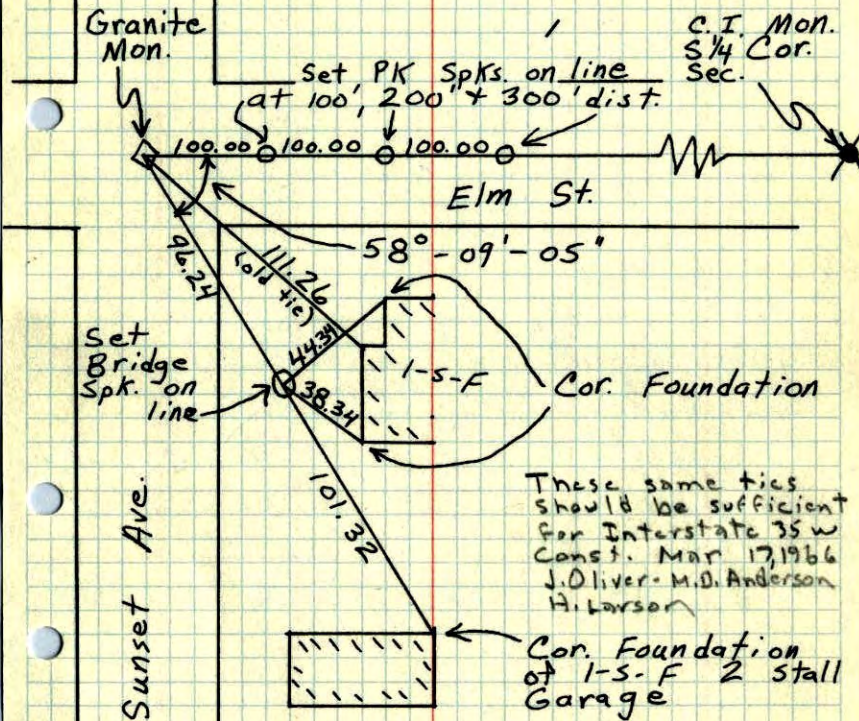 Granite
Mon.
C. I. Mon.
S 1/4 Cor.
Sec.
Set PK Spks. on line
at 100', 200' + 300' dist.
100.00 100.00 100.00
Elm St.
58°-09'-05"
96.24
111.26
(old tie)
44.34
38.34
1-S-F
Set
Bridge
Spk. on
line
Cor. Foundation
101.32
These same ties
should be sufficient
for Interstate 35 W
Const. Mar 17, 1966
J. Oliver - M.D. Anderson
H. Larson
Sunset Ave.
Cor. Foundation
of 1-S-F 2 Stall
Garage